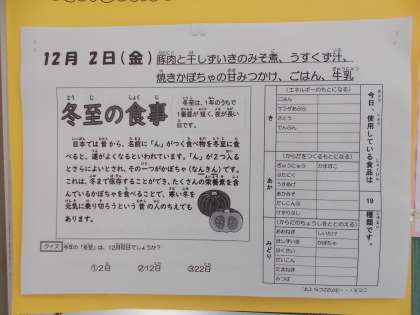 12月 2日(金) 豚肉と干しずいきのみそ煮、うすくず汁、
焼きかぼちゃの甘みつかけ、ごはん、牛乳
冬至の食事
冬至は、1年のうちで
1番昼が短く、夜が長い
日です。
日本では昔から、名前に「ん」がつく食べ物を冬至に食
べると、運がよくなるといわれています。「ん」が2つ入る
とさらによいとされ、その一つがかぼちゃ(なんきん)です。
これは、冬まで保存することができ、たくさんの栄養素を含
んでいるかぼちゃを食べることで、寒い冬を
元気に乗り切ろうという昔の人のちえでも
あります。
クイズ 今年の「冬至」は、12月何日でしょうか?
①2日 ②12日 ③22日
今日、使用している食品は 19 種類です。
き
(エネルギーのもとになる)
ごはん
さとう
でんぷん
あか
(からだをつくるもとになる)
ぎゅうにゅう
ぶたにく
うすあげ
あかみそ
だしこんぶ
けずりぶし
みどり
(からだのちょうしをととのえる)
あおねぎ しいたけ
ほしずいき かぼちゃ
はくさい
だいこん
たまねぎ
みつば